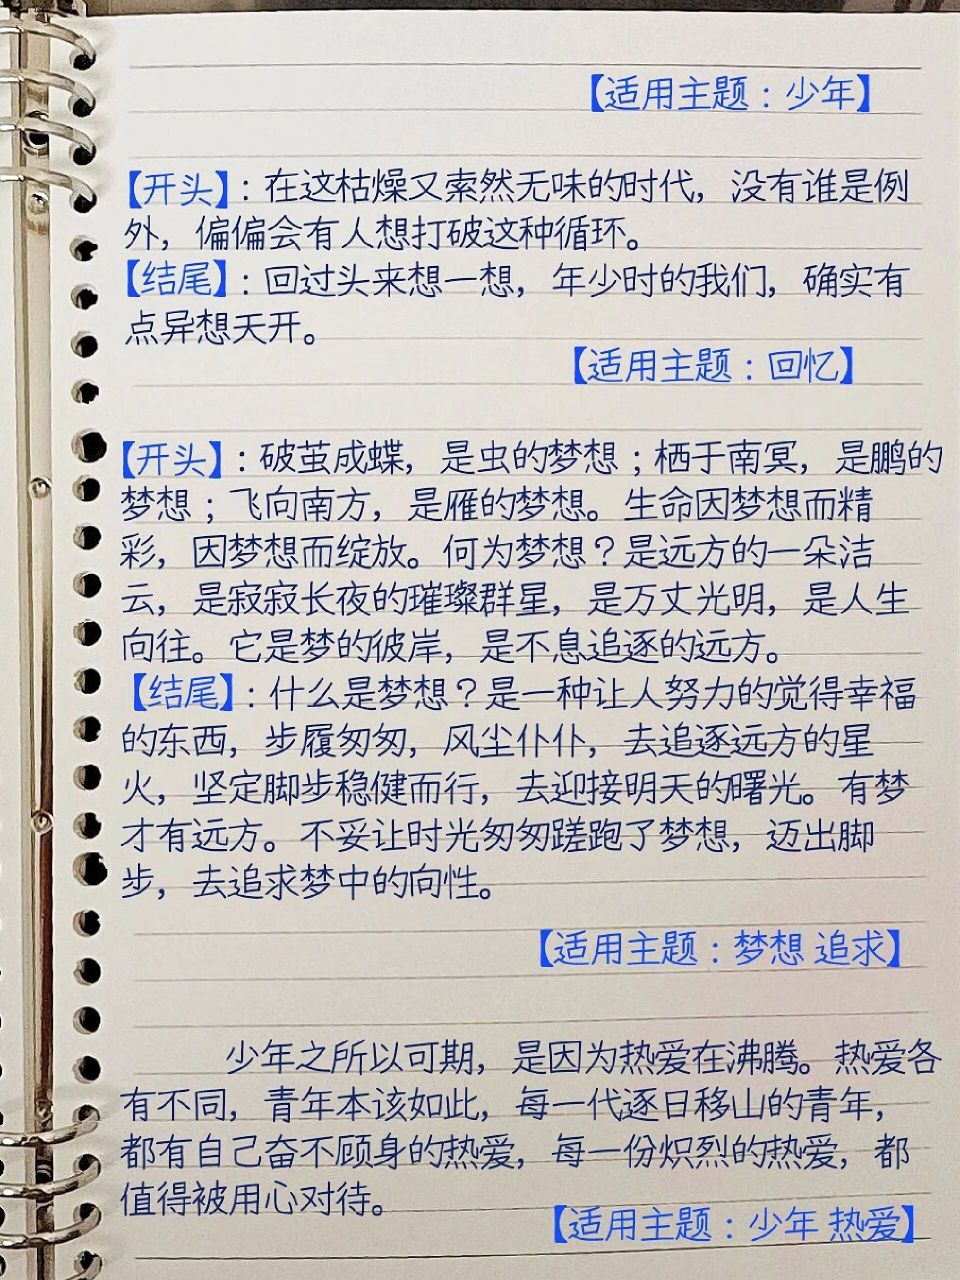 【适用主题：少年】
【开头】：在这枯燥又索然无味的时代，没有谁是例
外，偏偏会有人想打破这种循环。
【结尾】：回过头来想一想，年少时的我们，确实有
点异想天开。
【适用主题：回忆】
【开头】：破茧成蝶，是虫的梦想；栖于南冥，是鹏的
梦想；飞向南方，是雁的梦想。生命因梦想而精
彩，因梦想而绽放。何为梦想？是远方的一朵洁
云，是寂寂长夜的璀璨群星，是万丈光明，是人生
向往。它是梦的彼岸，是不息追逐的远方。
【结尾】：什么是梦想？是一种让人努力的觉得幸福
的东西，步履匆匆，风尘仆仆，去追逐远方的星
火，坚定脚步稳健而行，去迎接明天的曙光。有梦
才有远方。不妥让时光匆匆蹉跑了梦想，迈出脚
步，去追求梦中的向性。
【适用主题：梦想 追求】
少年之所以可期，是因为热爱在沸腾。热爱各
有不同，青年本该如此，每一代逐日移山的青年，
都有自己奋不顾身的热爱，每一份炽烈的热爱，都
值得被用心对待。
【适用主题：少年 热爱】